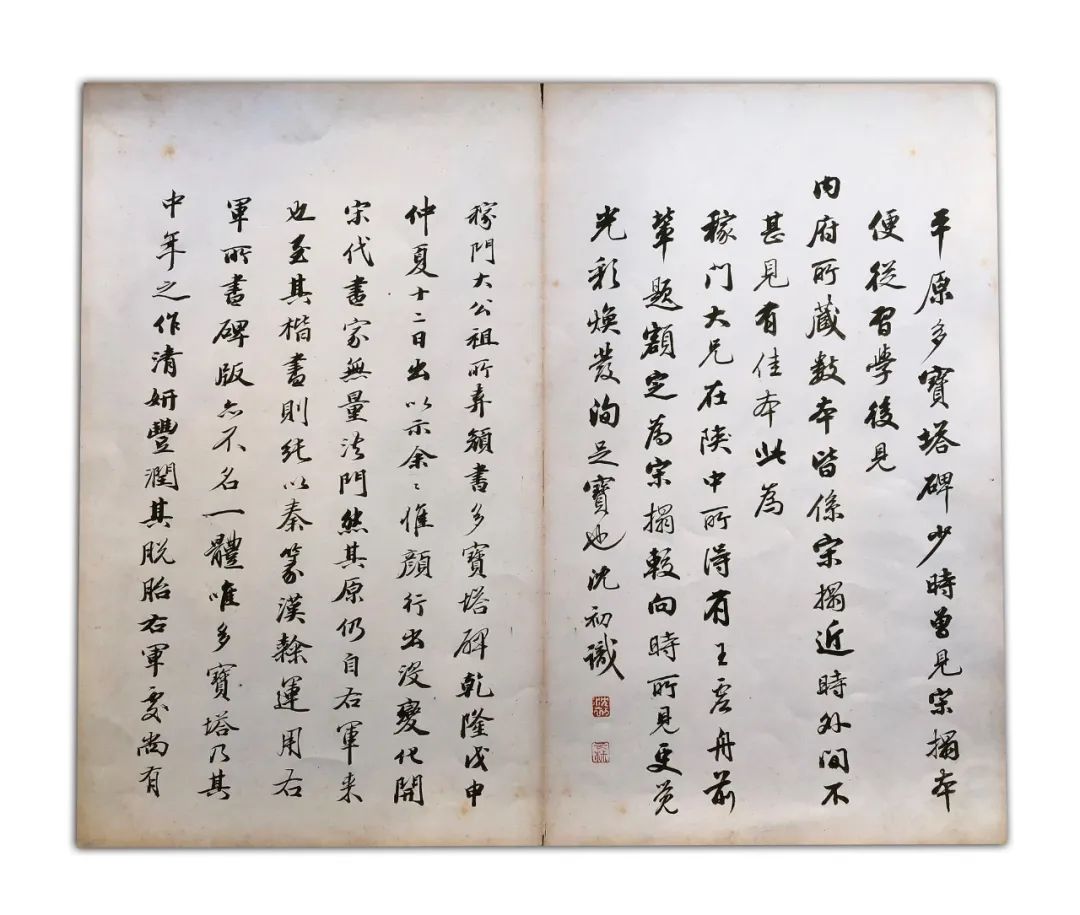 平原多寶塔碑少時曾見宋搨本
便從習學後見
內府所藏數本皆係宋搨近時外間不
甚見有佳本此為
稼門大兄在陝中所得有王虛舟前
輩題額定為宋搨較向時所見更覺
光彩煥發洵足寶也沈初識
稼門大公祖所弆顏書多寶塔碑乾隆戊申
仲夏十二日出以示余〻惟顏行出沒變化開
宋代書家無量法門然其原仍自右軍來
也至其楷書則純以秦篆漢隸運用右
軍所書碑版亦不名一體唯多寶塔乃其
中年之作清妍豐潤其脫胎右軍處尚有